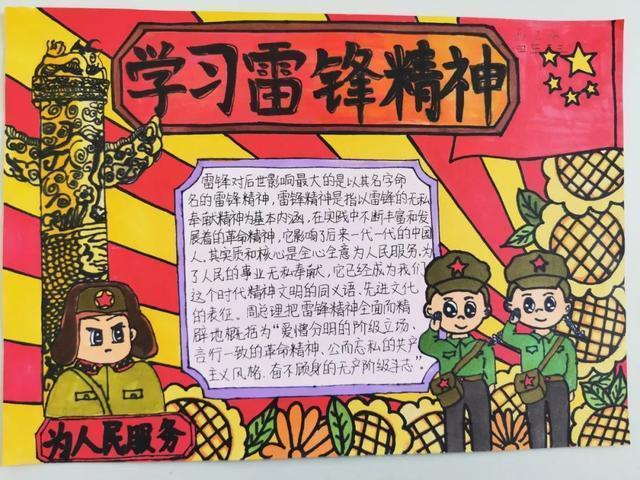 学习雷锋精神
雷锋对后世影响最大的是以其名字命
名的雷锋精神，雷锋精神是指以雷锋的无私
奉献精神为基本内涵，在实践中不断丰富和发
展着的革命精神，它影响了后来一代一代的中国
人，其实质和核心是全心全意为人民服务，为
了人民的事业无私奉献，它已经成为我们
这个时代精神文明的同义语、先进文化
的表征。周总理把雷锋精神全面而精
辟地概括为“爱憎分明的阶级立场、
言行一致的革命精神、公而忘私的共产
主义风格、奋不顾身的无产阶级斗志”。
为人民服务